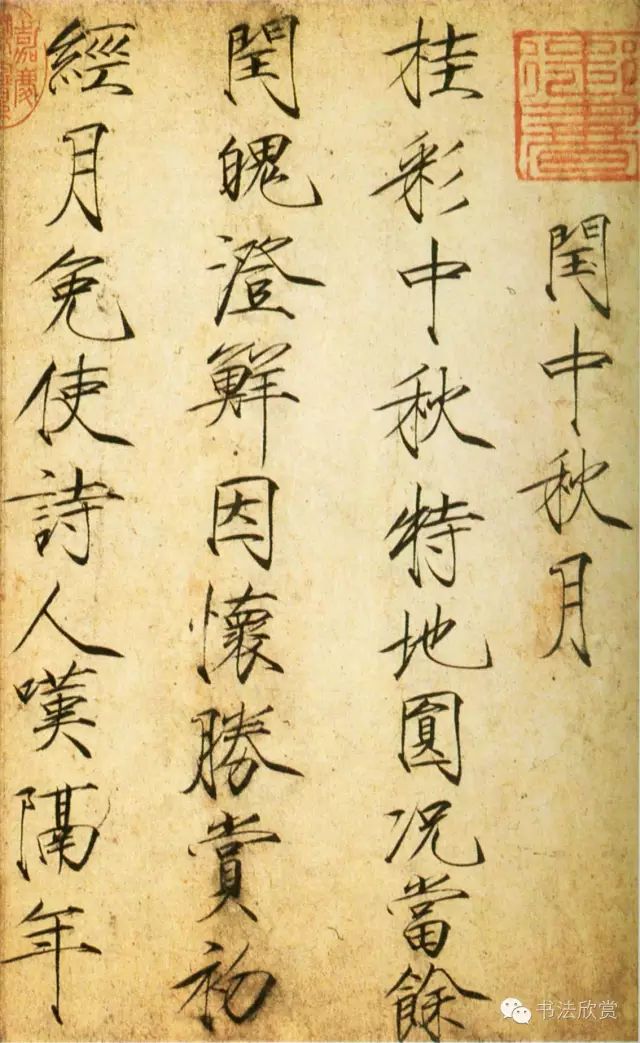 閏中秋月
桂彩中秋特地圓况當餘
閏魄澄鮮因懷勝賞初
經月免使詩人嘆隔年
御書
嘉慶
书法欣赏